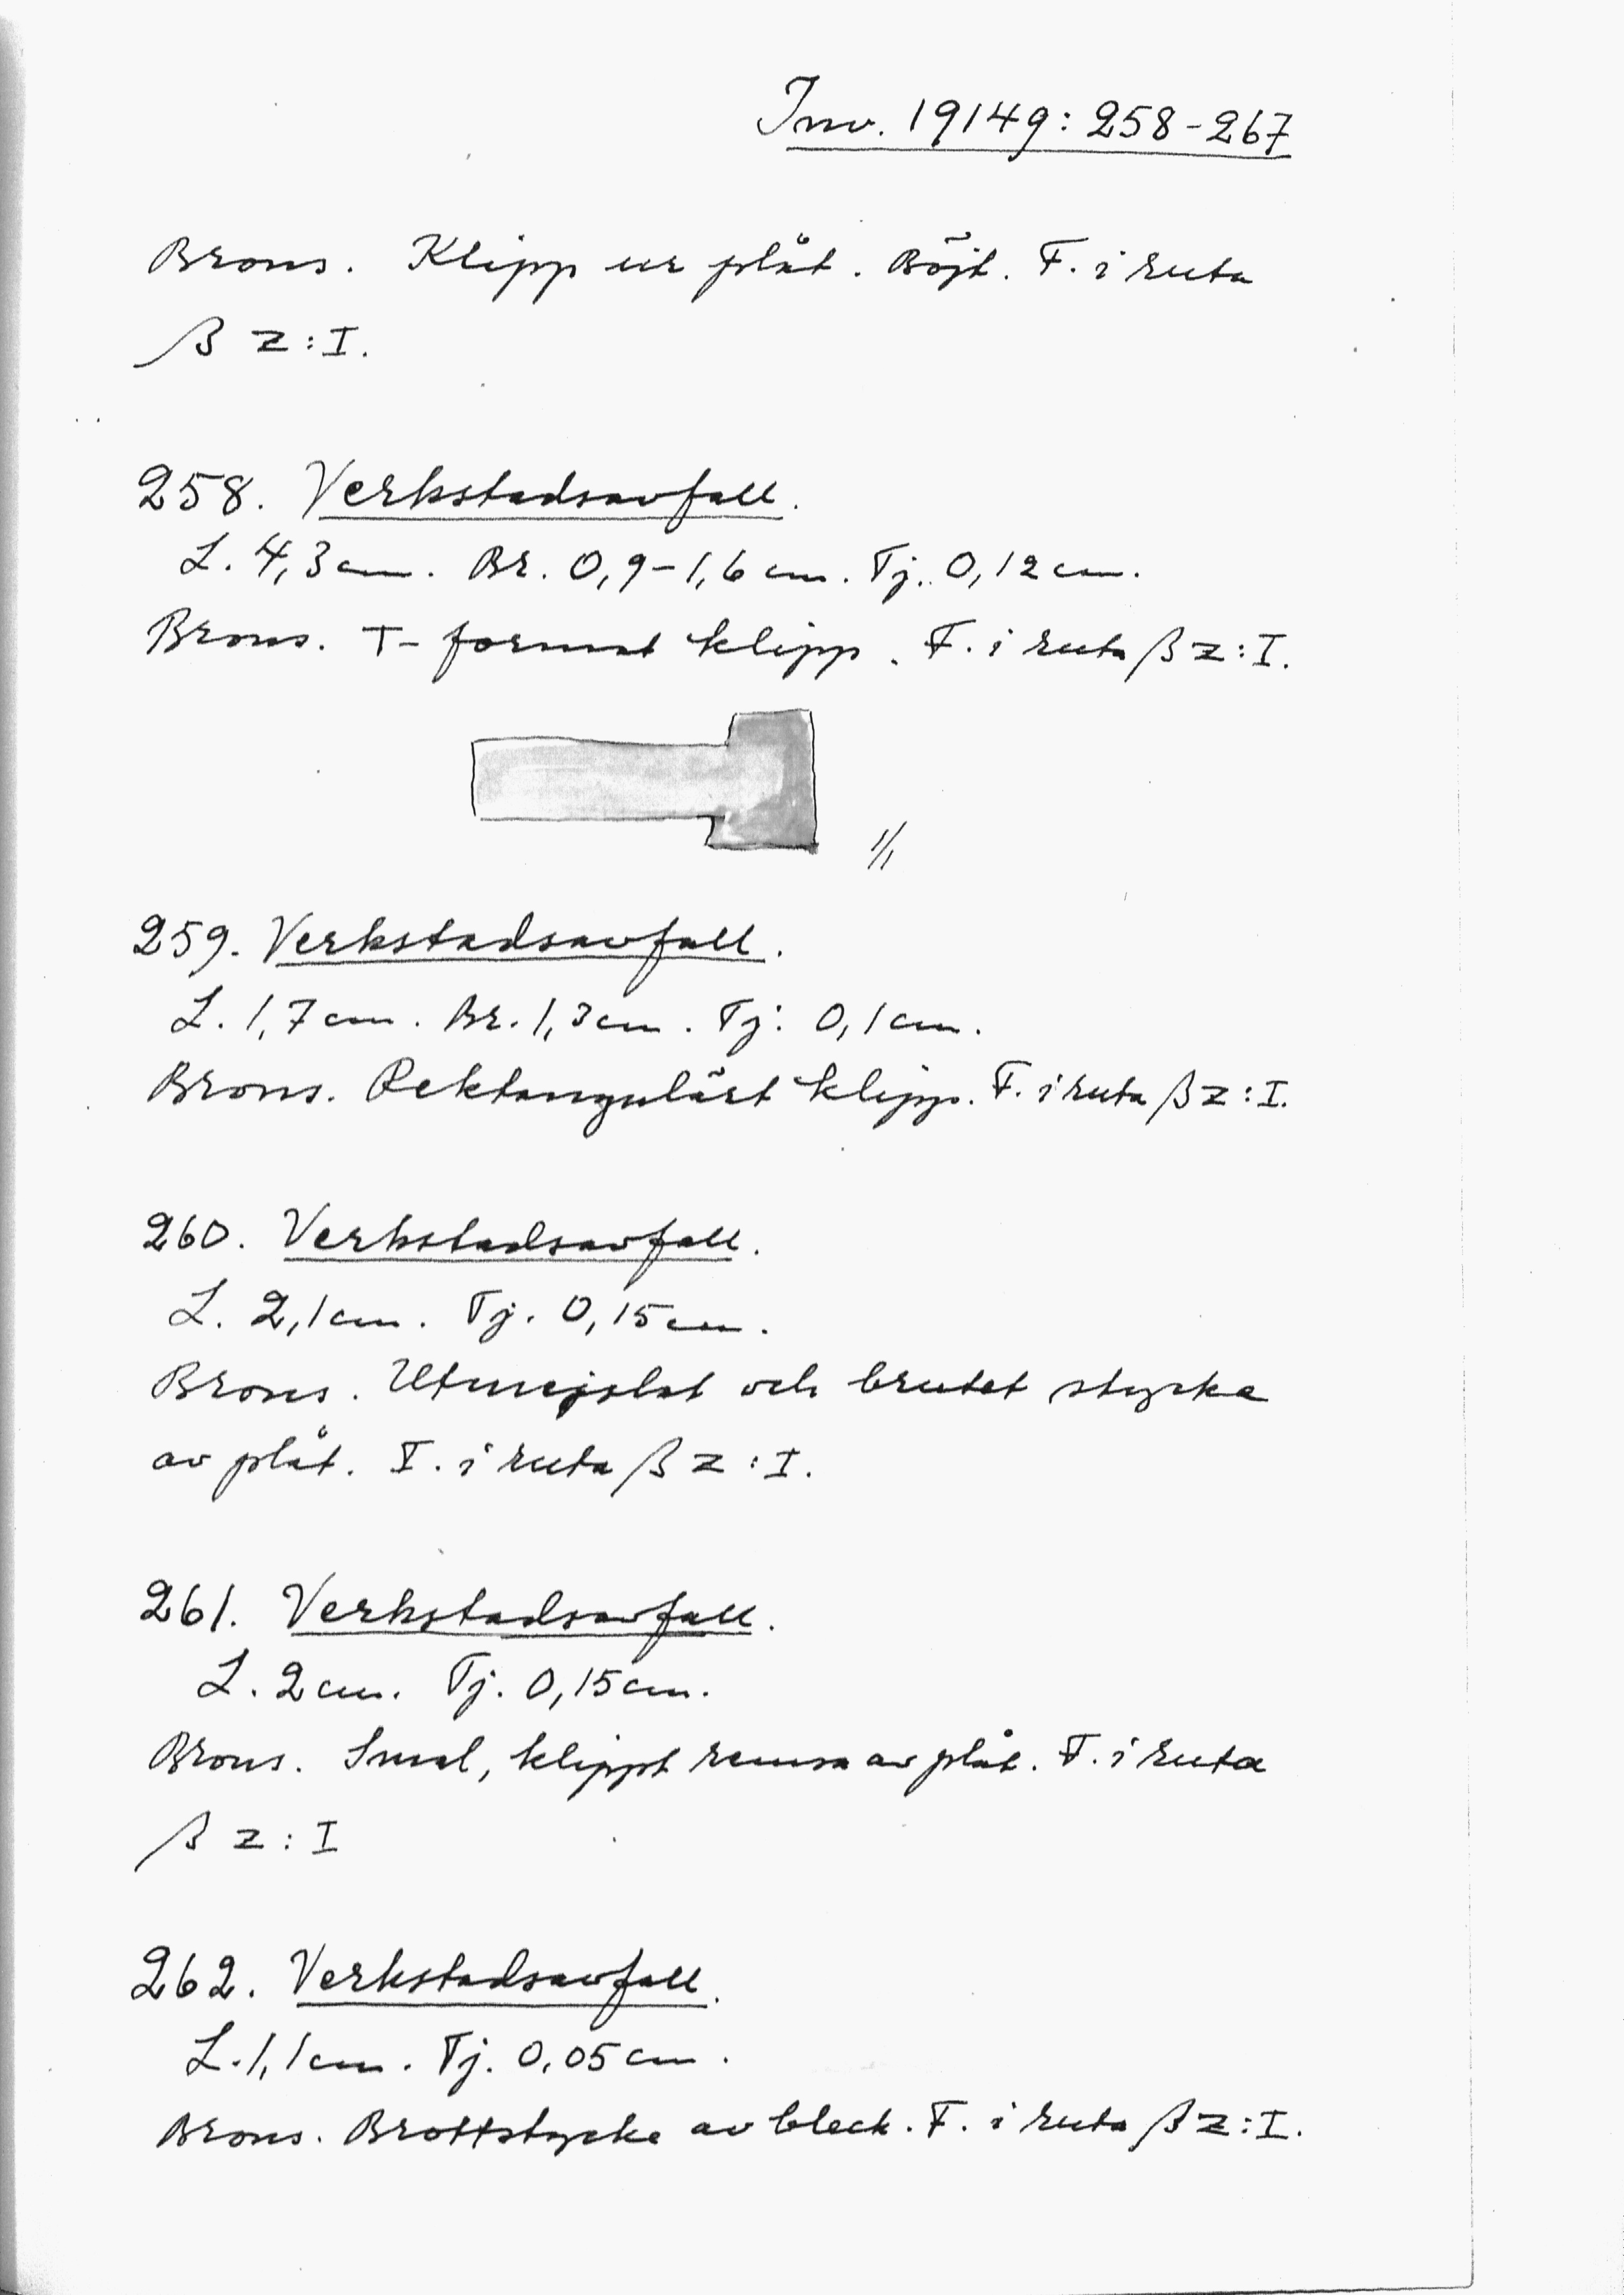 Inv. 19149: 258-267
Brons. Klipp ur plåt. Böjt. F. i ruta
β z:I.
258. Verkstadsavfall.
L. 4,3 cm. Br. 0,9-1,6 cm. Tj. 0,12 cm.
Brons. T-format klipp. F. i ruta β z:I.
1/1
259. Verkstadsavfall.
L. 1,7 cm. Br. 1,3 cm. Tj. 0,1 cm.
Brons. Rektangulärt klipp. F. i ruta β z:I.
260. Verkstadsavfall.
L. 2,1 cm. Tj. 0,15 cm.
Brons. Utmejslat och brutet stycke
av plåt. F. i ruta β z:I.
261. Verkstadsavfall.
L. 2 cm. Tj. 0,15 cm.
Brons. Smal, klippt remsa av plåt. F. i ruta
β z:I
262. Verkstadsavfall.
L. 1,1 cm. Tj. 0,05 cm.
Brons. Brottstycke av bleck. F. i ruta β z:I.